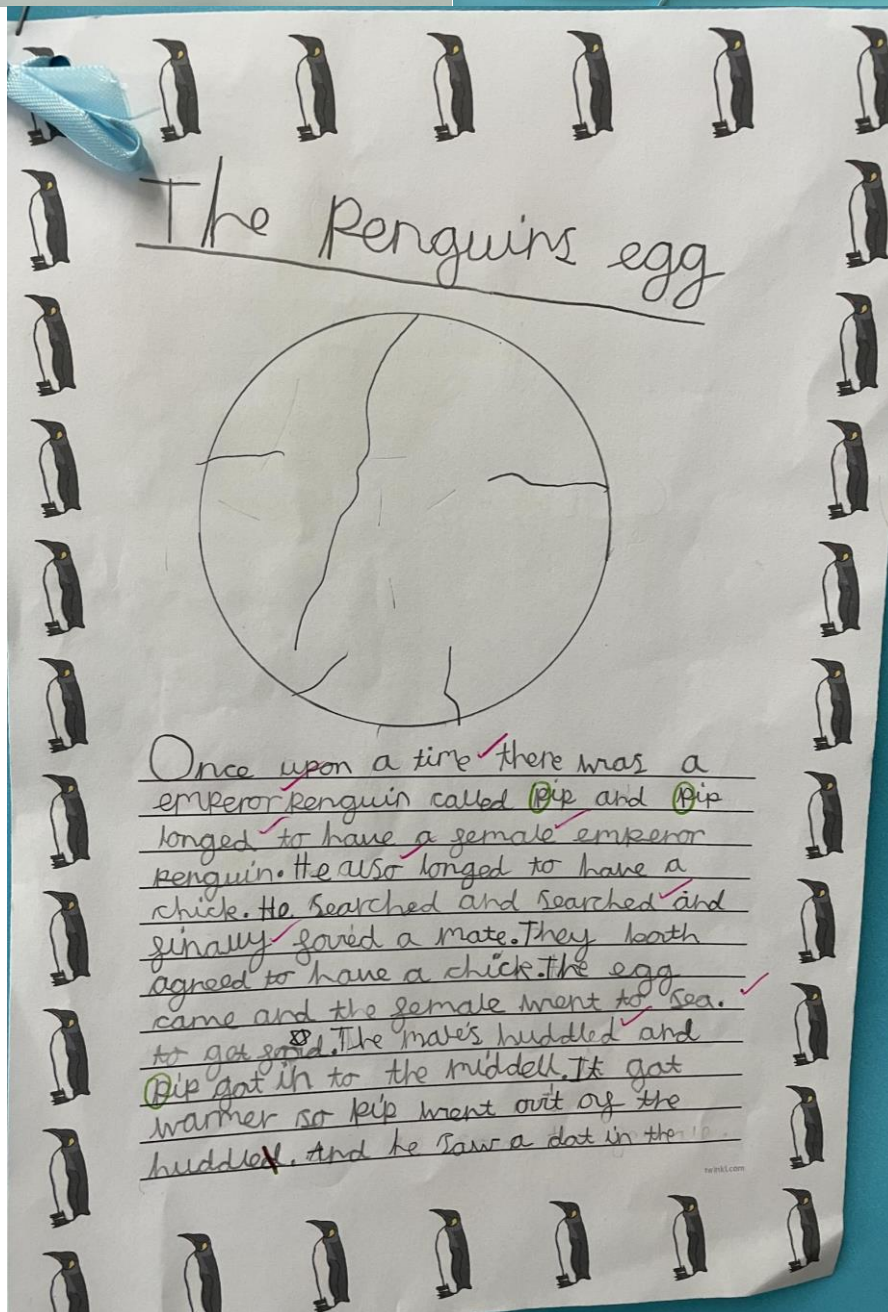 The Penguins egg
Once upon a time there was a
emperor penguin called pip and pip
longed to have a female emperor
penguin. He also longed to have a
chick. He searched and searched and
finally found a mate. They both
agreed to have a chick. The egg
came and the female went to sea.
to get food. The male's huddled and
pip got in to the middell. It got
warmer so pip went out of the
huddle. And he saw a dot in the
twinkl.com